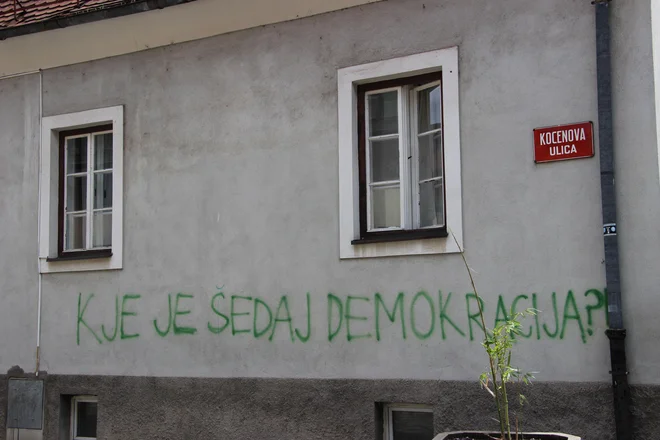 KOCENOVA
ULICA
KJE JE ŠEDAJ DEMOKRACIJA?!